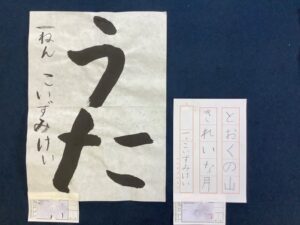 うた
一ねん こいずみけい
とおくの山
きれいな月
一、こいずみけい